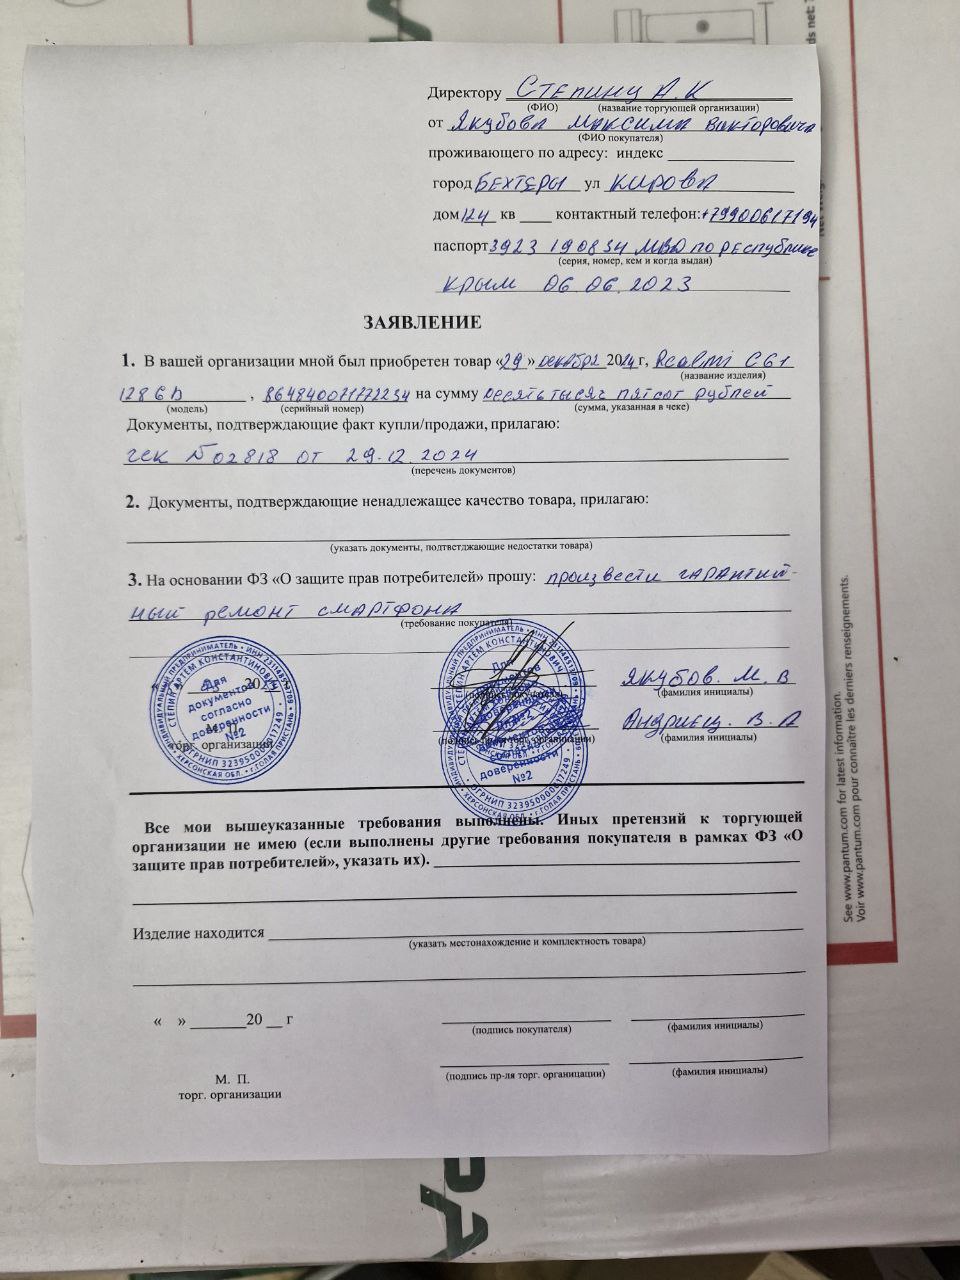 Директору Степину А.К
(ФИО) (название торгующей организации)
от Якубова Максима Викторовича
(ФИО покупателя)
проживающего по адресу: индекс
город Бехтеры ул Кирова
дом 124 кв ____ контактный телефон: +79900617194
паспорт 3923 190834 МВД по республике
(серия, номер, кем и когда выдан)
Крым 06.06.2023
ЗАЯВЛЕНИЕ
1. В вашей организации мной был приобретен товар «29» декабря 2024г, Realmi C61
(название изделия)
128GB , 864840071772234 на сумму десять тысяч пятсот рублей
(модель) (серийный номер) (сумма, указанная в чеке)
Документы, подтверждающие факт купли/продажи, прилагаю:
чек №02818 от 29.12.2024
(перечень документов)
2. Документы, подтверждающие ненадлежащее качество товара, прилагаю:
(указать документы, подтветджающие недостатки товара)
3. На основании ФЗ «О защите прав потребителей» прошу: произвести гарантий-
ный ремонт смартфона
(требование покупателя)
ИНДИВИДУАЛЬНЫЙ ПРЕДПРИНИМАТЕЛЬ
СТЕПИН АРТЕМ КОНСТАНТИНОВИЧ
Для документов согласно доверенности №2
ХЕРСОНСКАЯ ОБЛ. • Г.ГОЛАЯ ПРИСТАНЬ
Якубов. М. В
(фамилия инициалы)
Андриец. В. А
(подпись пр-ля торг. организации) (фамилия инициалы)
торг. организации
Все мои вышеуказанные требования выполнены. Иных претензий к торгующей
организации не имею (если выполнены другие требования покупателя в рамках ФЗ «О
защите прав потребителей», указать их).
Изделие находится
(указать местонахождение и комплектность товара)
« » _______20 __ г
(подпись покупателя) (фамилия инициалы)
(подпись пр-ля торг. органицации) (фамилия инициалы)
М. П.
торг. организации
See www.pantum.com for latest information.
Voir www.pantum.com pour connaître les derniers renseignements.